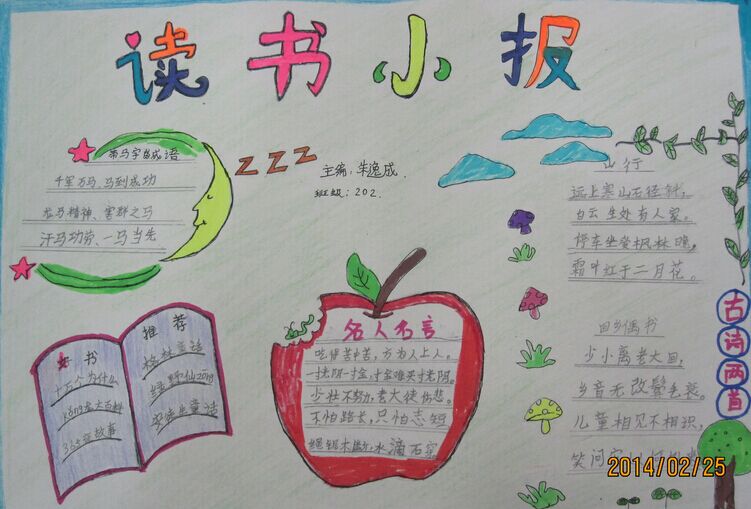 读书小报
带马字的成语
千军万马、马到成功
龙马精神、害群之马
汗马功劳、一马当先
主编:朱逸成
班级:202.
好书
推荐
十万个为什么
恐龙大百科
365夜故事
格林童话
绿野仙踪
安徒生童话
名人名言
吃得苦中苦,方为人上人。
一寸光阴一寸金,寸金难买寸光阴。
少壮不努力,老大徒伤悲。
不怕路长,只怕志短
绳锯木断,水滴石穿
山行
远上寒山石径斜,
白云生处有人家。
停车坐爱枫林晚,
霜叶红于二月花。
古诗两首
回乡偶书
少小离老大回,
乡音无改鬓毛衰。
儿童相见不相识,
笑问客
2014/02/25